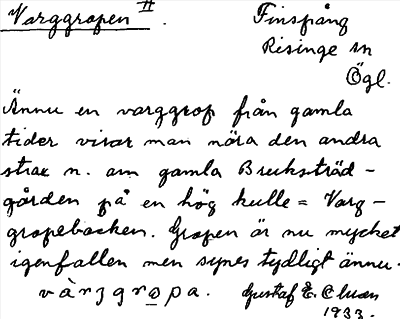 Varggropen II.
Finspång
Risinge sn
Ögl.
Ännu en varggrop från gamla
tider visar man nära den andra
strax n. om gamla Bruksträd-
gården på en hög kulle = Varg-
gropebacken. Gropen är nu mycket
igenfallen men synes tydligt ännu.
vàrggropa.
Gustaf E.
1933.